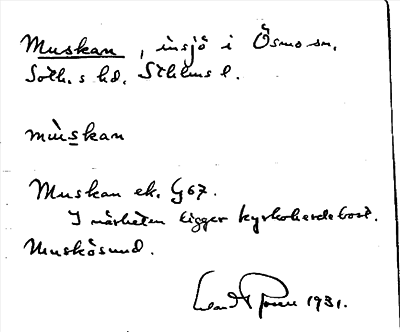 Muskan, insjö i Ösmo sn.
Soth.s hd. Sthlms l.
mùskan
Muskan ek. G67.
I närheten ligger kyrkoherdebost.
Muskösund.
1931.